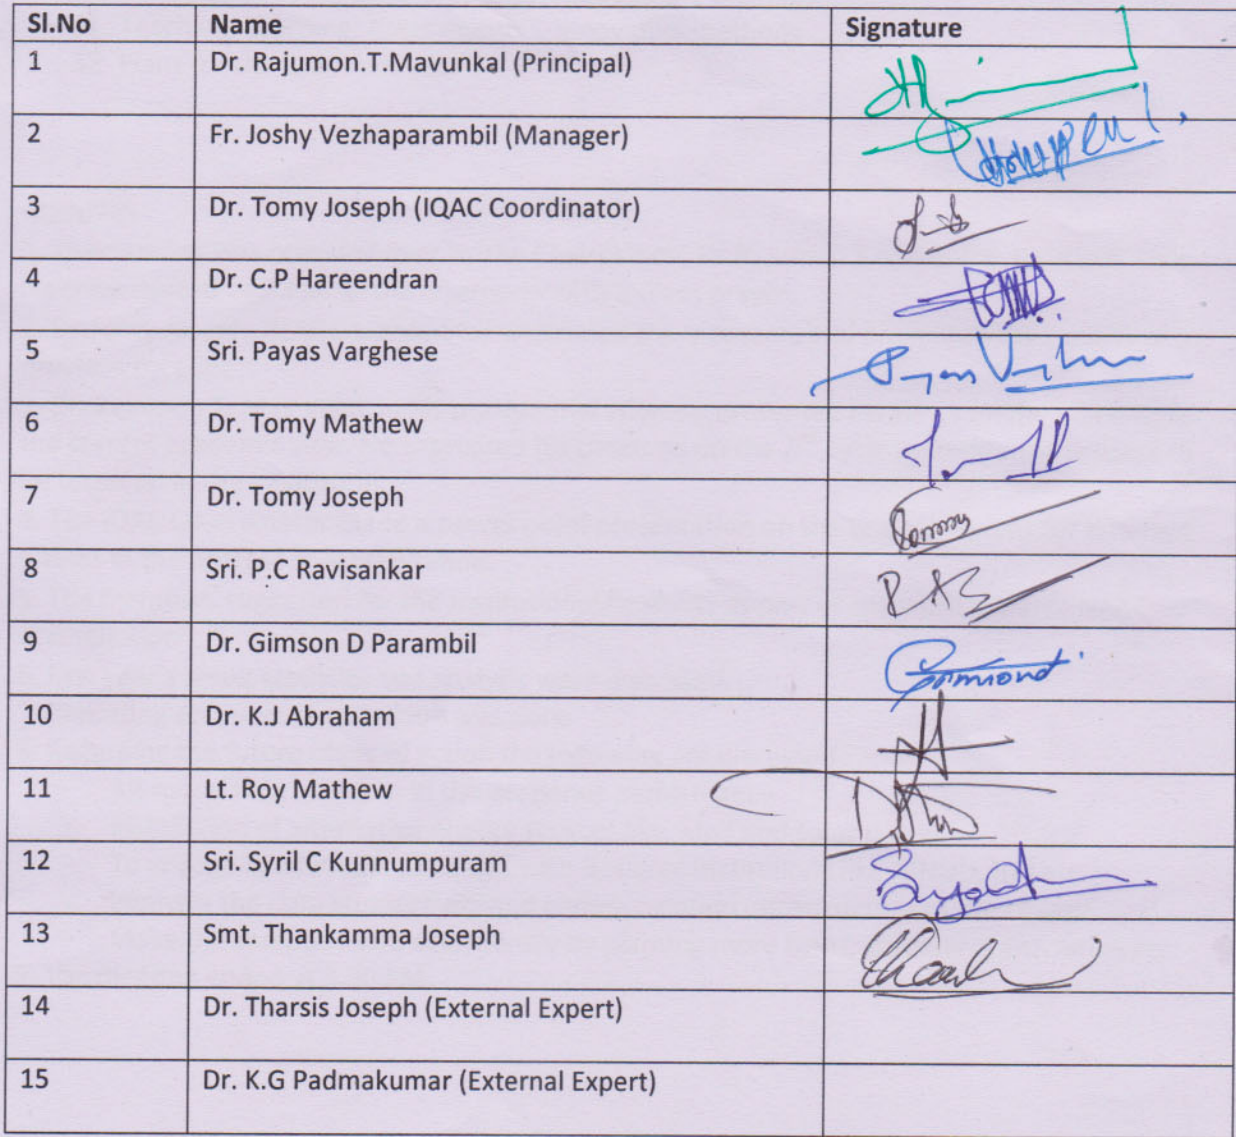 Sl.No Name Signature
1 Dr. Rajumon.T.Mavunkal (Principal)
2 Fr. Joshy Vezhaparambil (Manager)
3 Dr. Tomy Joseph (IQAC Coordinator)
4 Dr. C.P Hareendran
5 Sri. Payas Varghese
6 Dr. Tomy Mathew
7 Dr. Tomy Joseph
8 Sri. P.C Ravisankar
9 Dr. Gimson D Parambil
10 Dr. K.J Abraham
11 Lt. Roy Mathew
12 Sri. Syril C Kunnumpuram
13 Smt. Thankamma Joseph
14 Dr. Tharsis Joseph (External Expert)
15 Dr. K.G Padmakumar (External Expert)